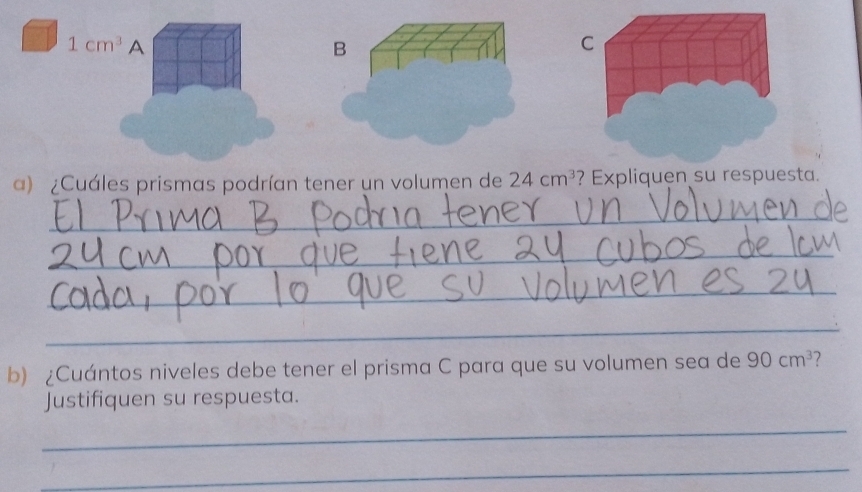 1 cm³ A B C
a) ¿Cuáles prismas podrían tener un volumen de 24 cm³? Expliquen su respuesta.
El Prima B Podria tener un Volumen de
24 cm por que tiene 24 cubos de 1cm
cada, por lo que su volumen es 24
b) ¿Cuántos niveles debe tener el prisma C para que su volumen sea de 90 cm³?
Justifiquen su respuesta.